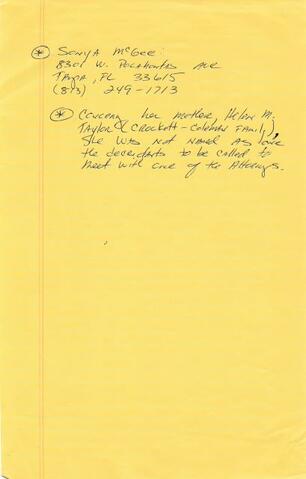 * Sonya McGee:
8301 W. Pocahontas Ave
Tampa, FL 33615
(813) 249-1713
* Concern her mother, Helen M.
Taylor (Crockett-Coleman Family),
She was not named as one
the decendants to be called to
meet with one of the Attorneys.